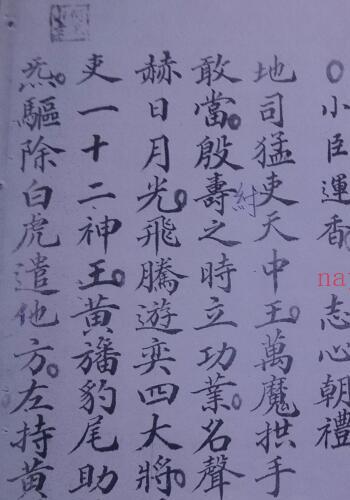 ○小臣運香志心朝禮
地司猛吏天中王。萬魔拱手
敢當。殷壽之時立功業。名聲
紂
赫日月光。飛騰遊奕四大將。
吏一十二神王。黃旛豹尾助
炁。驅除白虎遣他方。左持黃
na